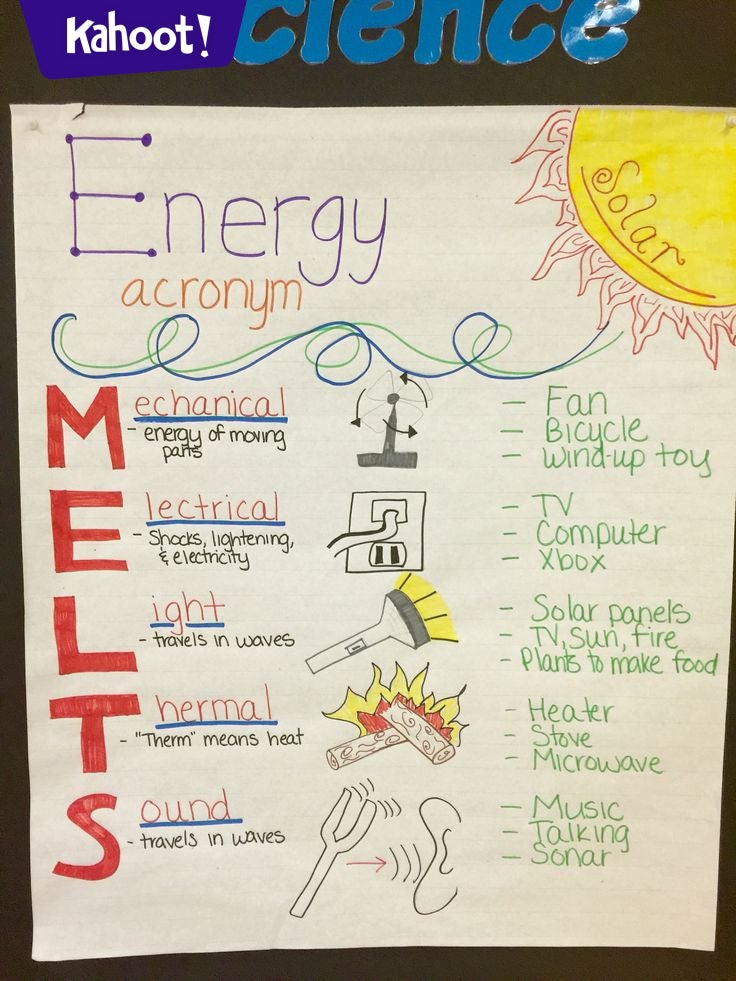 Kahoot!
cience
Energy
acronym
Solar
Mechanical
- energy of moving
parts
- Fan
- Bicycle
- wind-up toy
Electrical
- Shocks, lightening,
& electricity
- TV
- Computer
- Xbox
Light
- travels in waves
- Solar panels
- TV, Sun, fire
- Plants to make food
Thermal
- "Therm" means heat
- Heater
- Stove
- Microwave
Sound
- travels in waves
- Music
- Talking
- Sonar